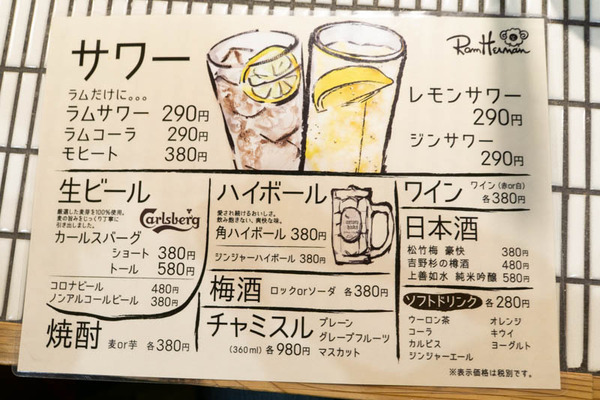 サワー
ラムだけに。。。
ラムサワー 290円
ラムコーラ 290円
モヒート 380円
RamHerman
レモンサワー
290円
ジンサワー
290円
生ビール
厳選した麦芽を100%使用。
麦の旨みをじっくり丁寧に
引き出しました。
Carlsberg
カールスバーグ
ショート 380円
トール 580円
コロナビール 480円
ノンアルコールビール 380円
ハイボール
愛され続けるおいしさ。
飲み飽きない、爽快な味。
角ハイボール 380円
ジンジャーハイボール 380円
梅酒 ロックorソーダ 各380円
ワイン ワイン(赤or白)
各380円
日本酒
松竹梅 豪快 380円
吉野杉の樽酒 480円
上善如水 純米吟醸 580円
ソフトドリンク 各280円
ウーロン茶 オレンジ
コーラ キウイ
カルピス ヨーグルト
ジンジャーエール
焼酎 麦or芋 各380円
チャミスル
(360ml) 各980円
プレーン
グレープフルーツ
マスカット
※表示価格は税別です。